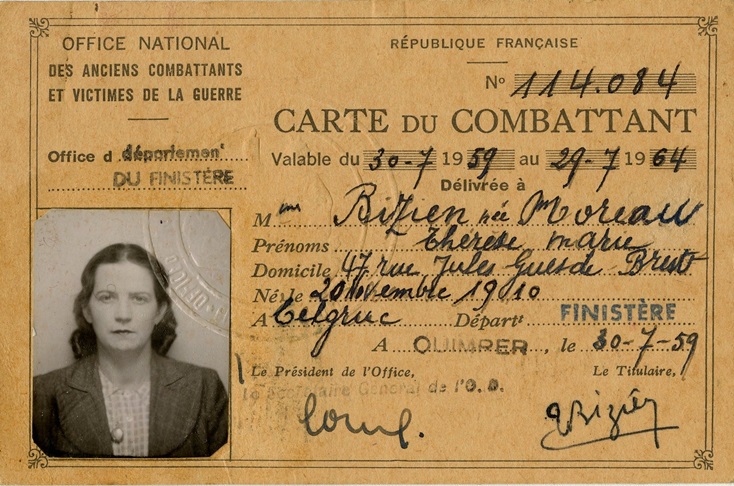 OFFICE NATIONAL
DES ANCIENS COMBATTANTS
ET VICTIMES DE LA GUERRE
Office d départemen'
DU FINISTÈRE
RÉPUBLIQUE FRANÇAISE
No 114.084
CARTE DU COMBATTANT
Valable du 30-7 1959 au 29-7 1964
Délivrée à
Mme Bizien née Moreau
Prénoms Thérèse Marie
Domicile 47 rue Jules Guesde Brest
Né le 20 Novembre 1910
A Telgruc Départt FINISTÈRE
A QUIMPER, le 30-7-59
Le Président de l'Office, Le Titulaire,
le Secrétaire Général de l'O.D.
Bizien